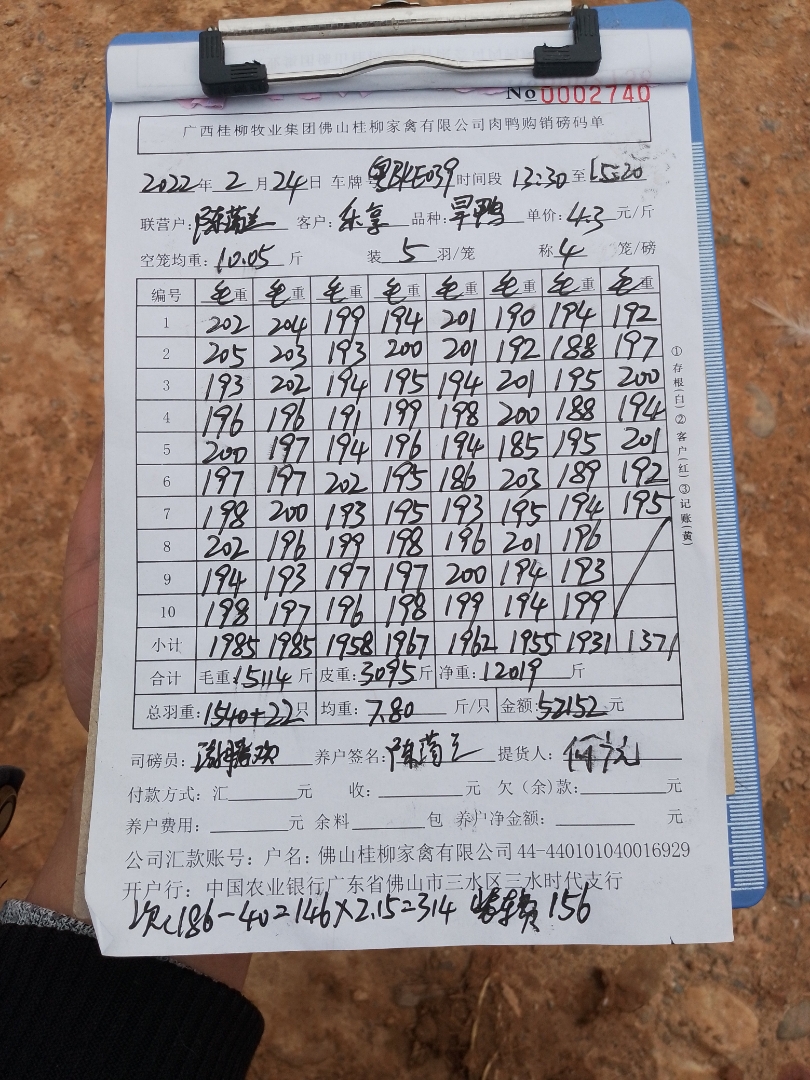 No 0002740
广西桂柳牧业集团佛山桂柳家禽有限公司肉鸭购销磅码单
2022年 2 月 24日 车牌号 粤BKE039 时间段 13:30 至 15:20
联营户: 客户: 乐享 品种: 旱鸭 单价: 4.3 元/斤
空笼均重: 10.05 斤 装 5 羽/笼 称 4 笼/磅
编号 毛重 毛重 毛重 毛重 毛重 毛重 毛重 毛重
1 202 204 199 194 201 190 194 192
2 205 203 193 200 201 192 188 197
3 193 202 194 195 194 201 195 200
4 196 196 191 199 198 200 188 194
5 200 197 194 196 194 185 195 201
6 197 197 202 195 186 203 189 192
7 198 200 193 195 193 195 194 195
8 202 196 199 198 196 201 196
9 194 193 197 197 200 194 193
10 198 197 196 198 199 194 199
小计 1985 1985 1958 1967 1962 1955 1931 1371
合计 毛重: 15114 斤 皮重: 3095 斤 净重: 12019 斤
总羽重: 1540+22 只 均重: 7.80 斤/只 金额: 52152 元
司磅员: 养户签名: 提货人:
付款方式: 汇 元 收: 元 欠(余)款: 元
养户费用: 元 余料 包 养户净金额: 元
公司汇款账号: 户名: 佛山桂柳家禽有限公司 44-440101040016929
开户行: 中国农业银行广东省佛山市三水区三水时代支行
次 186-40=146×2.15=314 156
①存根(白)②客户(红)③记账(黄)